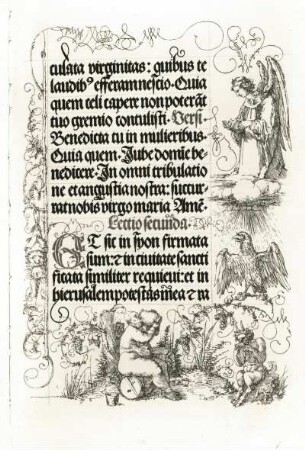 culata virginitas: quibus te
laudibꝰ efferam nescio. Quia
quem celi capere non poterāt
tuo gremio contulisti. Versi.
Benedicta tu in mulieribus.
Quia quem. Iube domīe be-
nedicere. In omni tribulatio
ne et angustia nostra: succur
rat nobis virgo maria. Amē.
Lectio secunda.
ET sic in syon firmata
sum: ⁊ in ciuitate sancti
ficata similiter requieui: et in
hierusalem potestas mea ⁊ ra